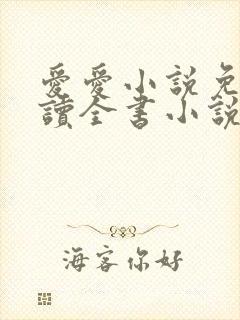 愛愛小說免
讀全書小說
海客你好